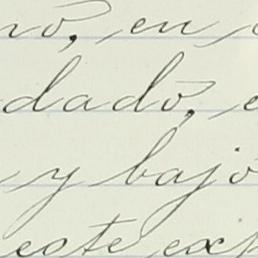 no, en
dado, e
y bajo
este exp